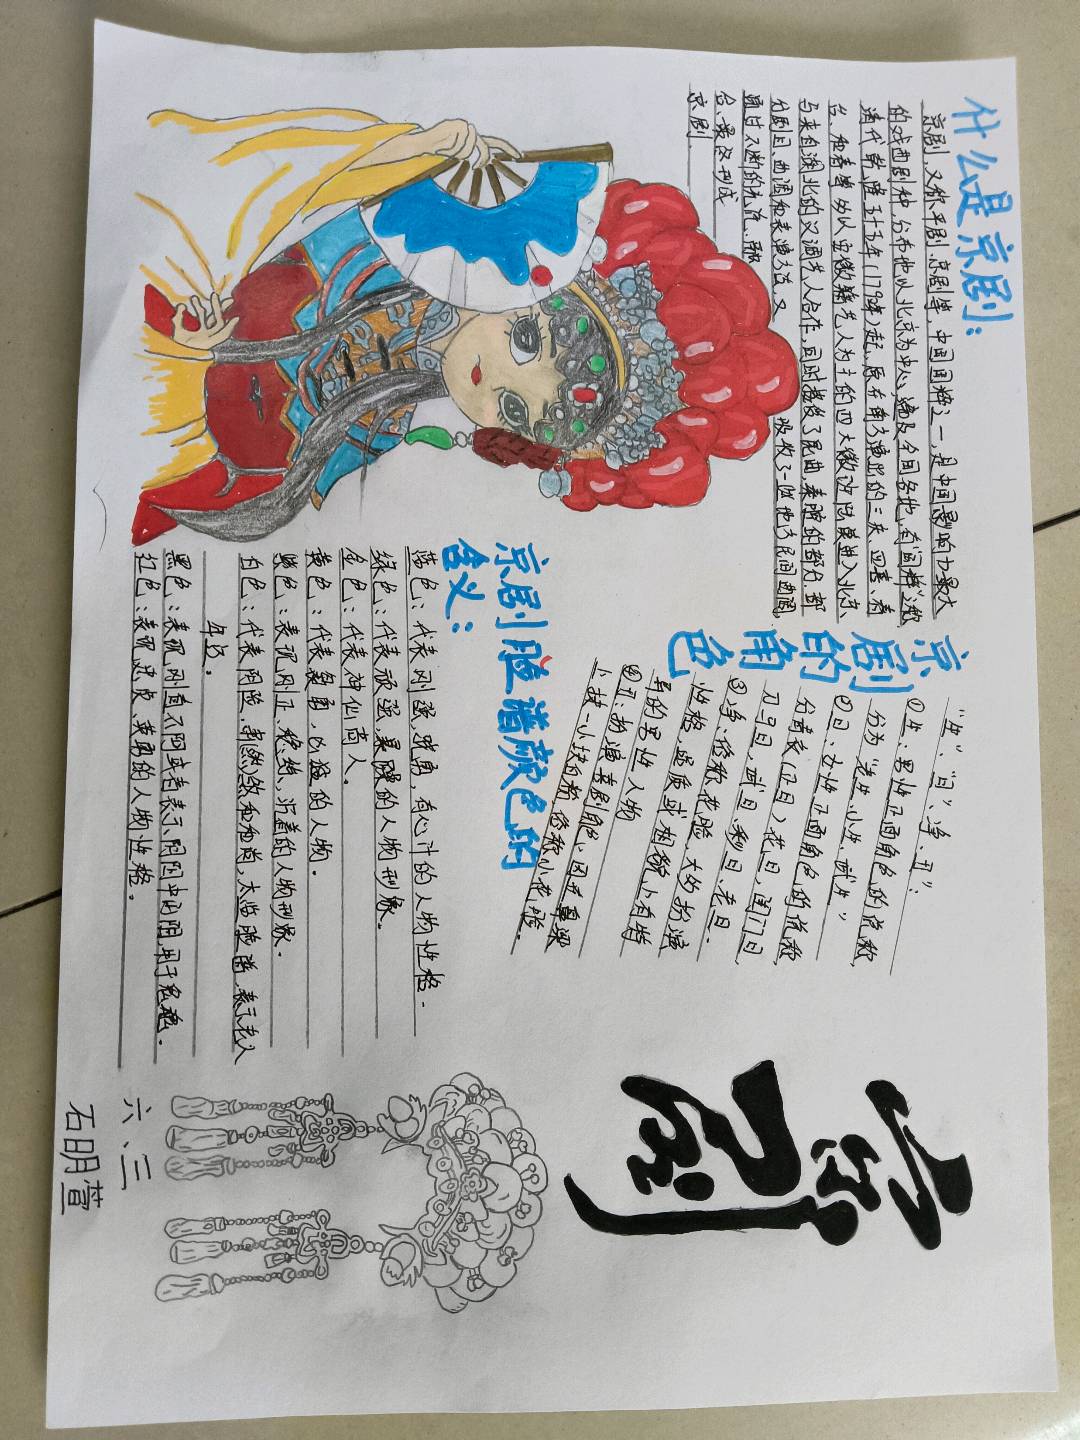 什么是京剧:
京剧,又称平剧、京剧等,中国国粹之一,是中国影响力最大
的戏曲剧种,分布地以北京为中心,遍及全国各地,有"国粹"激
清代乾隆五十五年(1790年)起,原在南方演出的三庆、四喜、春
台、和春,多以安徽籍艺人为主的四大徽班陆续进入北京
与来自湖北的汉调艺人合作,同时接受了昆曲、秦腔的部分,部
分剧目、曲调和表演方法,又吸收了一些地方民间曲调,
通过不断的交流、融
合,最终形成
京剧
京剧
的角
色
"生"、"旦"、净、丑":
①生:男性正面角色的统称,
分为"老生、小生、武生"
②旦:女性正面角色的统称,
分青衣(正旦)花旦,闺门旦,
刀马旦,武旦、彩旦、老旦.
③净:俗称花脸,大多扮演
性格,品质或相貌上有特
异的男性人物
④丑:扮演喜剧角色,因在鼻梁
上抹一小块白粉,俗称小花脸.
京剧脸谱颜色的
含义:
蓝色:代表刚强,骁勇,有心计的人物性格.
绿色:代表顽强,暴躁的人物形象.
金色:代表神仙高人.
黄色:代表枭勇,凶猛的人物.
紫色:表现刚正、稳练,沉着的人物形象.
白色:代表阴险、
和和尚,太监脸谱,表示老人
年迈.
黑色:表现刚直不阿或者表示阴阳中的阴,用于鬼魂.
红色:表现忠贞、英勇的人物性格.
京剧
六.三
石明萱